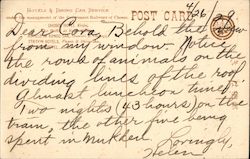 HOTELS & DINING CAR SERVICE
under the management of the Government Railways of Chosen
POST CARD
4/26/28
Dear Cora, Behold the view
from my window. Notice
the rows of animals on the
dividing lines of the roof
Almost luncheon time
Two nights (43 hours) on the
train, the other five being
spent in Mukden
Lovingly,
Helen